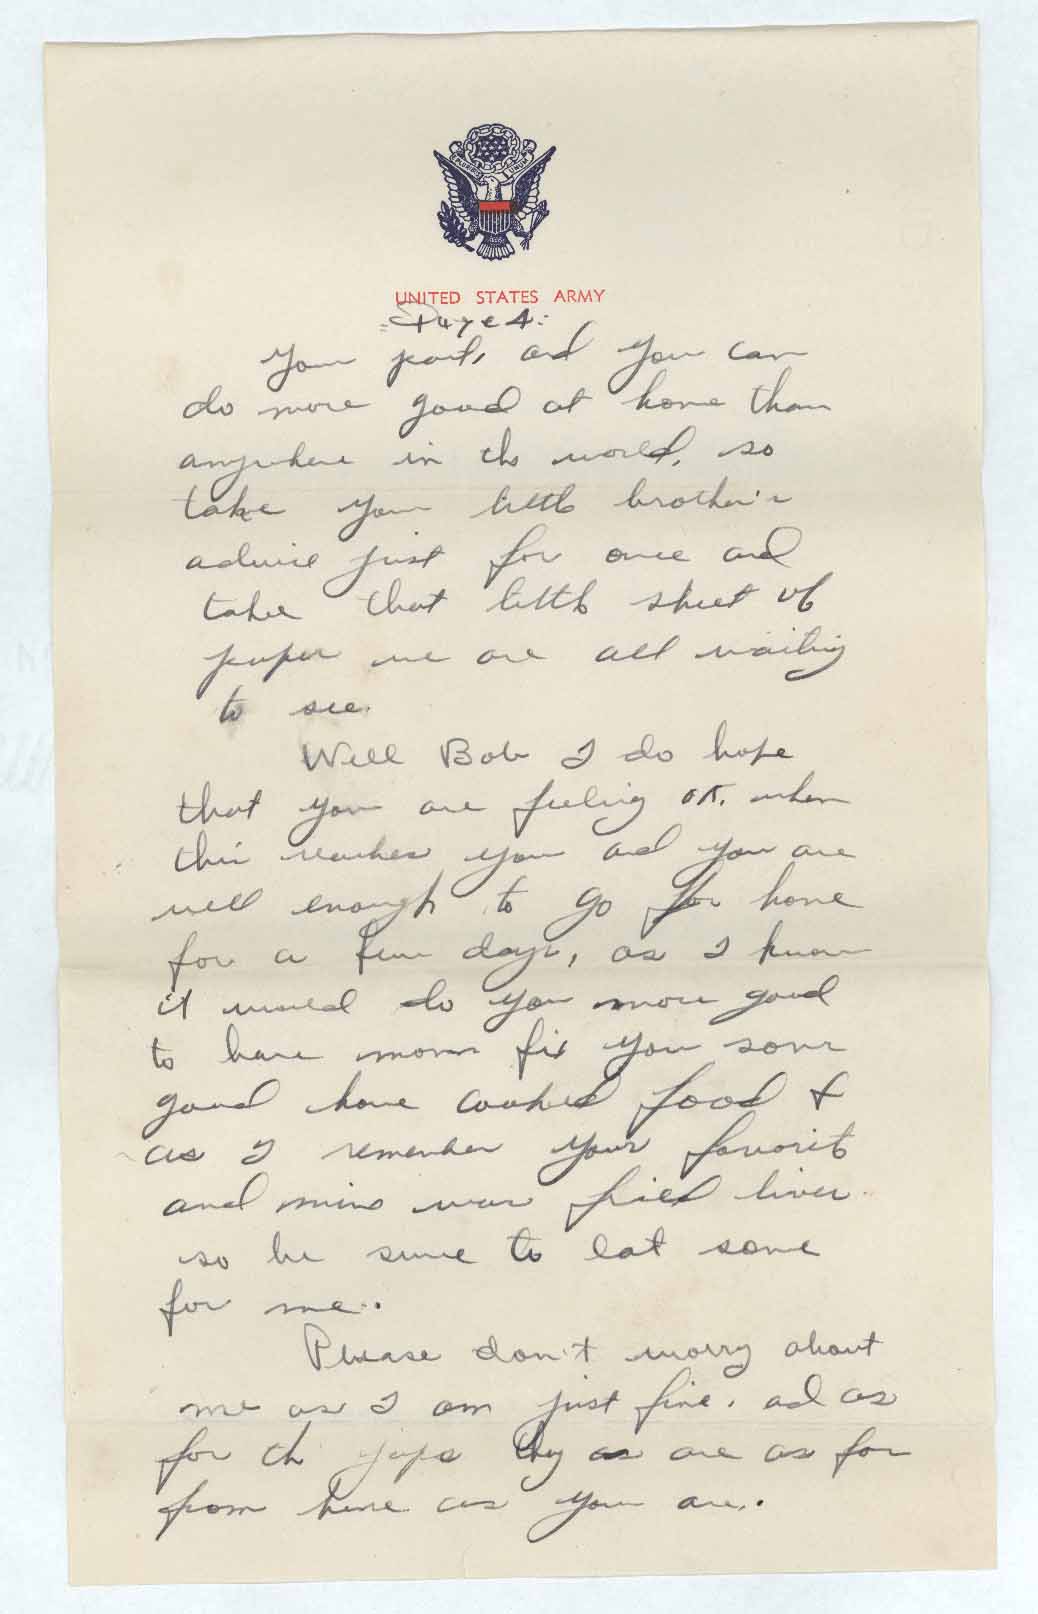 E PLURIBUS UNUM
UNITED STATES ARMY
= Page 4:
Your part, and you can
do more good at home than
anywhere in the world, so
take your little brother's
advice just for once and
take that little sheet of
paper we are all waiting
to see.
Well Bob I do hope
that you are feeling OK. when
this reaches you and you are
well enough to go for home
for a few days, as I know
it would do you more good
to have mom fix you some
good home cooked food &
as I remember your favorite
and mine was fried liver
so be sure to eat some
for me.
Please don't worry about
me as I am just fine. and as
for the japs they as are as far
from here as you are.